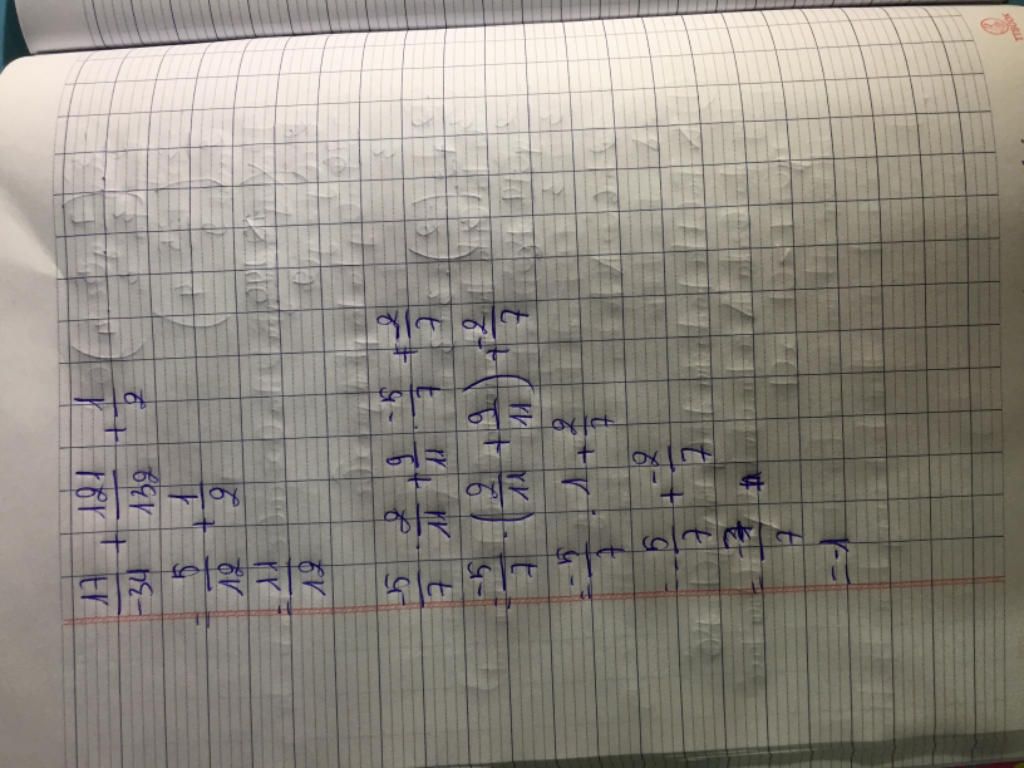 17/-34 + 121/132 + 1/2
= 5/12 + 1/2
= 11/12
-5/7 . 2/11 + 9/11 . -5/7 + 2/7
= -5/7 . (2/11 + 9/11) + -2/7
= -5/7 . 1 + 2/7
= -5/7 + -2/7
= -7/7
= -1